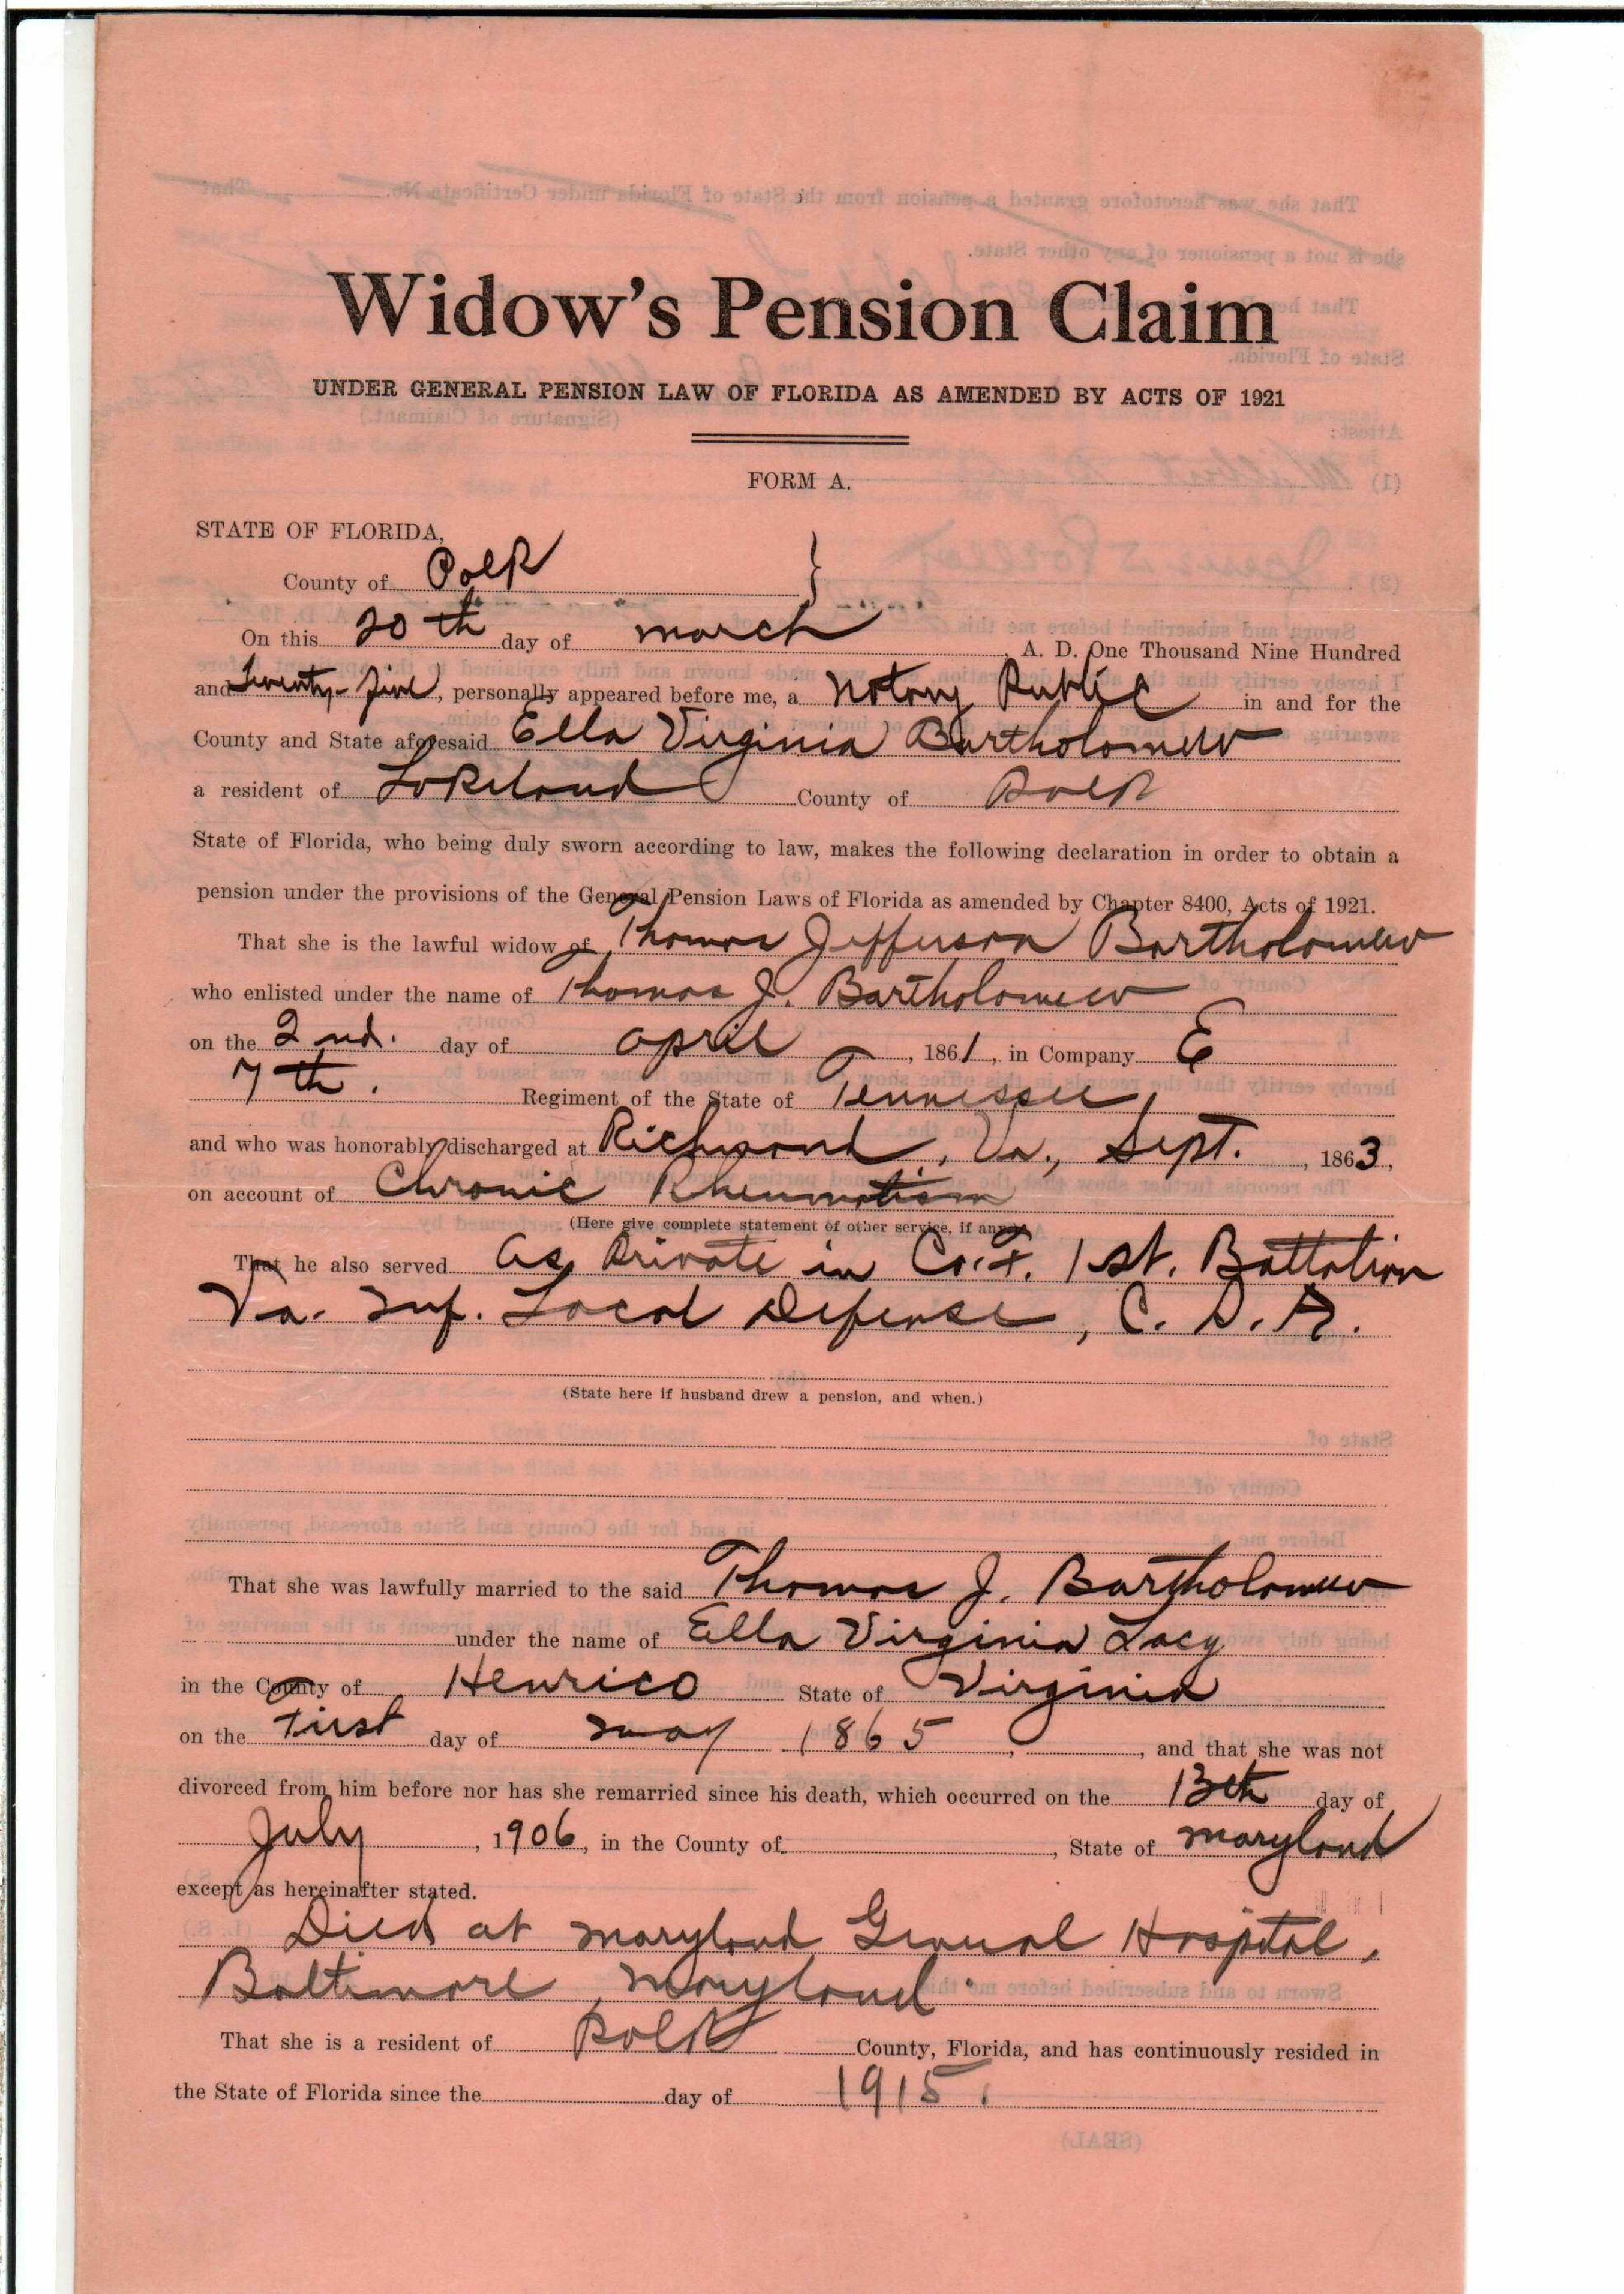 Widow's Pension Claim
UNDER GENERAL PENSION LAW OF FLORIDA AS AMENDED BY ACTS OF 1921
FORM A.
STATE OF FLORIDA,
County of Polk
On this 20th day of march, A. D. One Thousand Nine Hundred
and Twenty-five, personally appeared before me, a Notary Public in and for the
County and State aforesaid Ella Virginia Bartholomew
a resident of Lakeland County of Polk
State of Florida, who being duly sworn according to law, makes the following declaration in order to obtain a
pension under the provisions of the General Pension Laws of Florida as amended by Chapter 8400, Acts of 1921.
That she is the lawful widow of Thomas Jefferson Bartholomew
who enlisted under the name of Thomas J. Bartholomew
on the 2nd. day of april, 1861, in Company E
7th. Regiment of the State of Tennessee,
and who was honorably discharged at Richmond, Va., Sept., 1863,
on account of Chronic Rheumatism
(Here give complete statement of other service, if any.)
That he also served as Private in Co. F. 1st. Battalion
Va. Inf. Local Defense, C. S. A.
(State here if husband drew a pension, and when.)
That she was lawfully married to the said Thomas J. Bartholomew
under the name of Ella Virginia Lacy
in the County of Henrico State of Virginia
on the First day of may 1865, , and that she was not
divorced from him before nor has she remarried since his death, which occurred on the 13th day of
July, 1906, in the County of , State of maryland
except as hereinafter stated.
Died at maryland General Hospital,
Baltimore, maryland
That she is a resident of Polk County, Florida, and has continuously resided in
the State of Florida since the day of 1915.